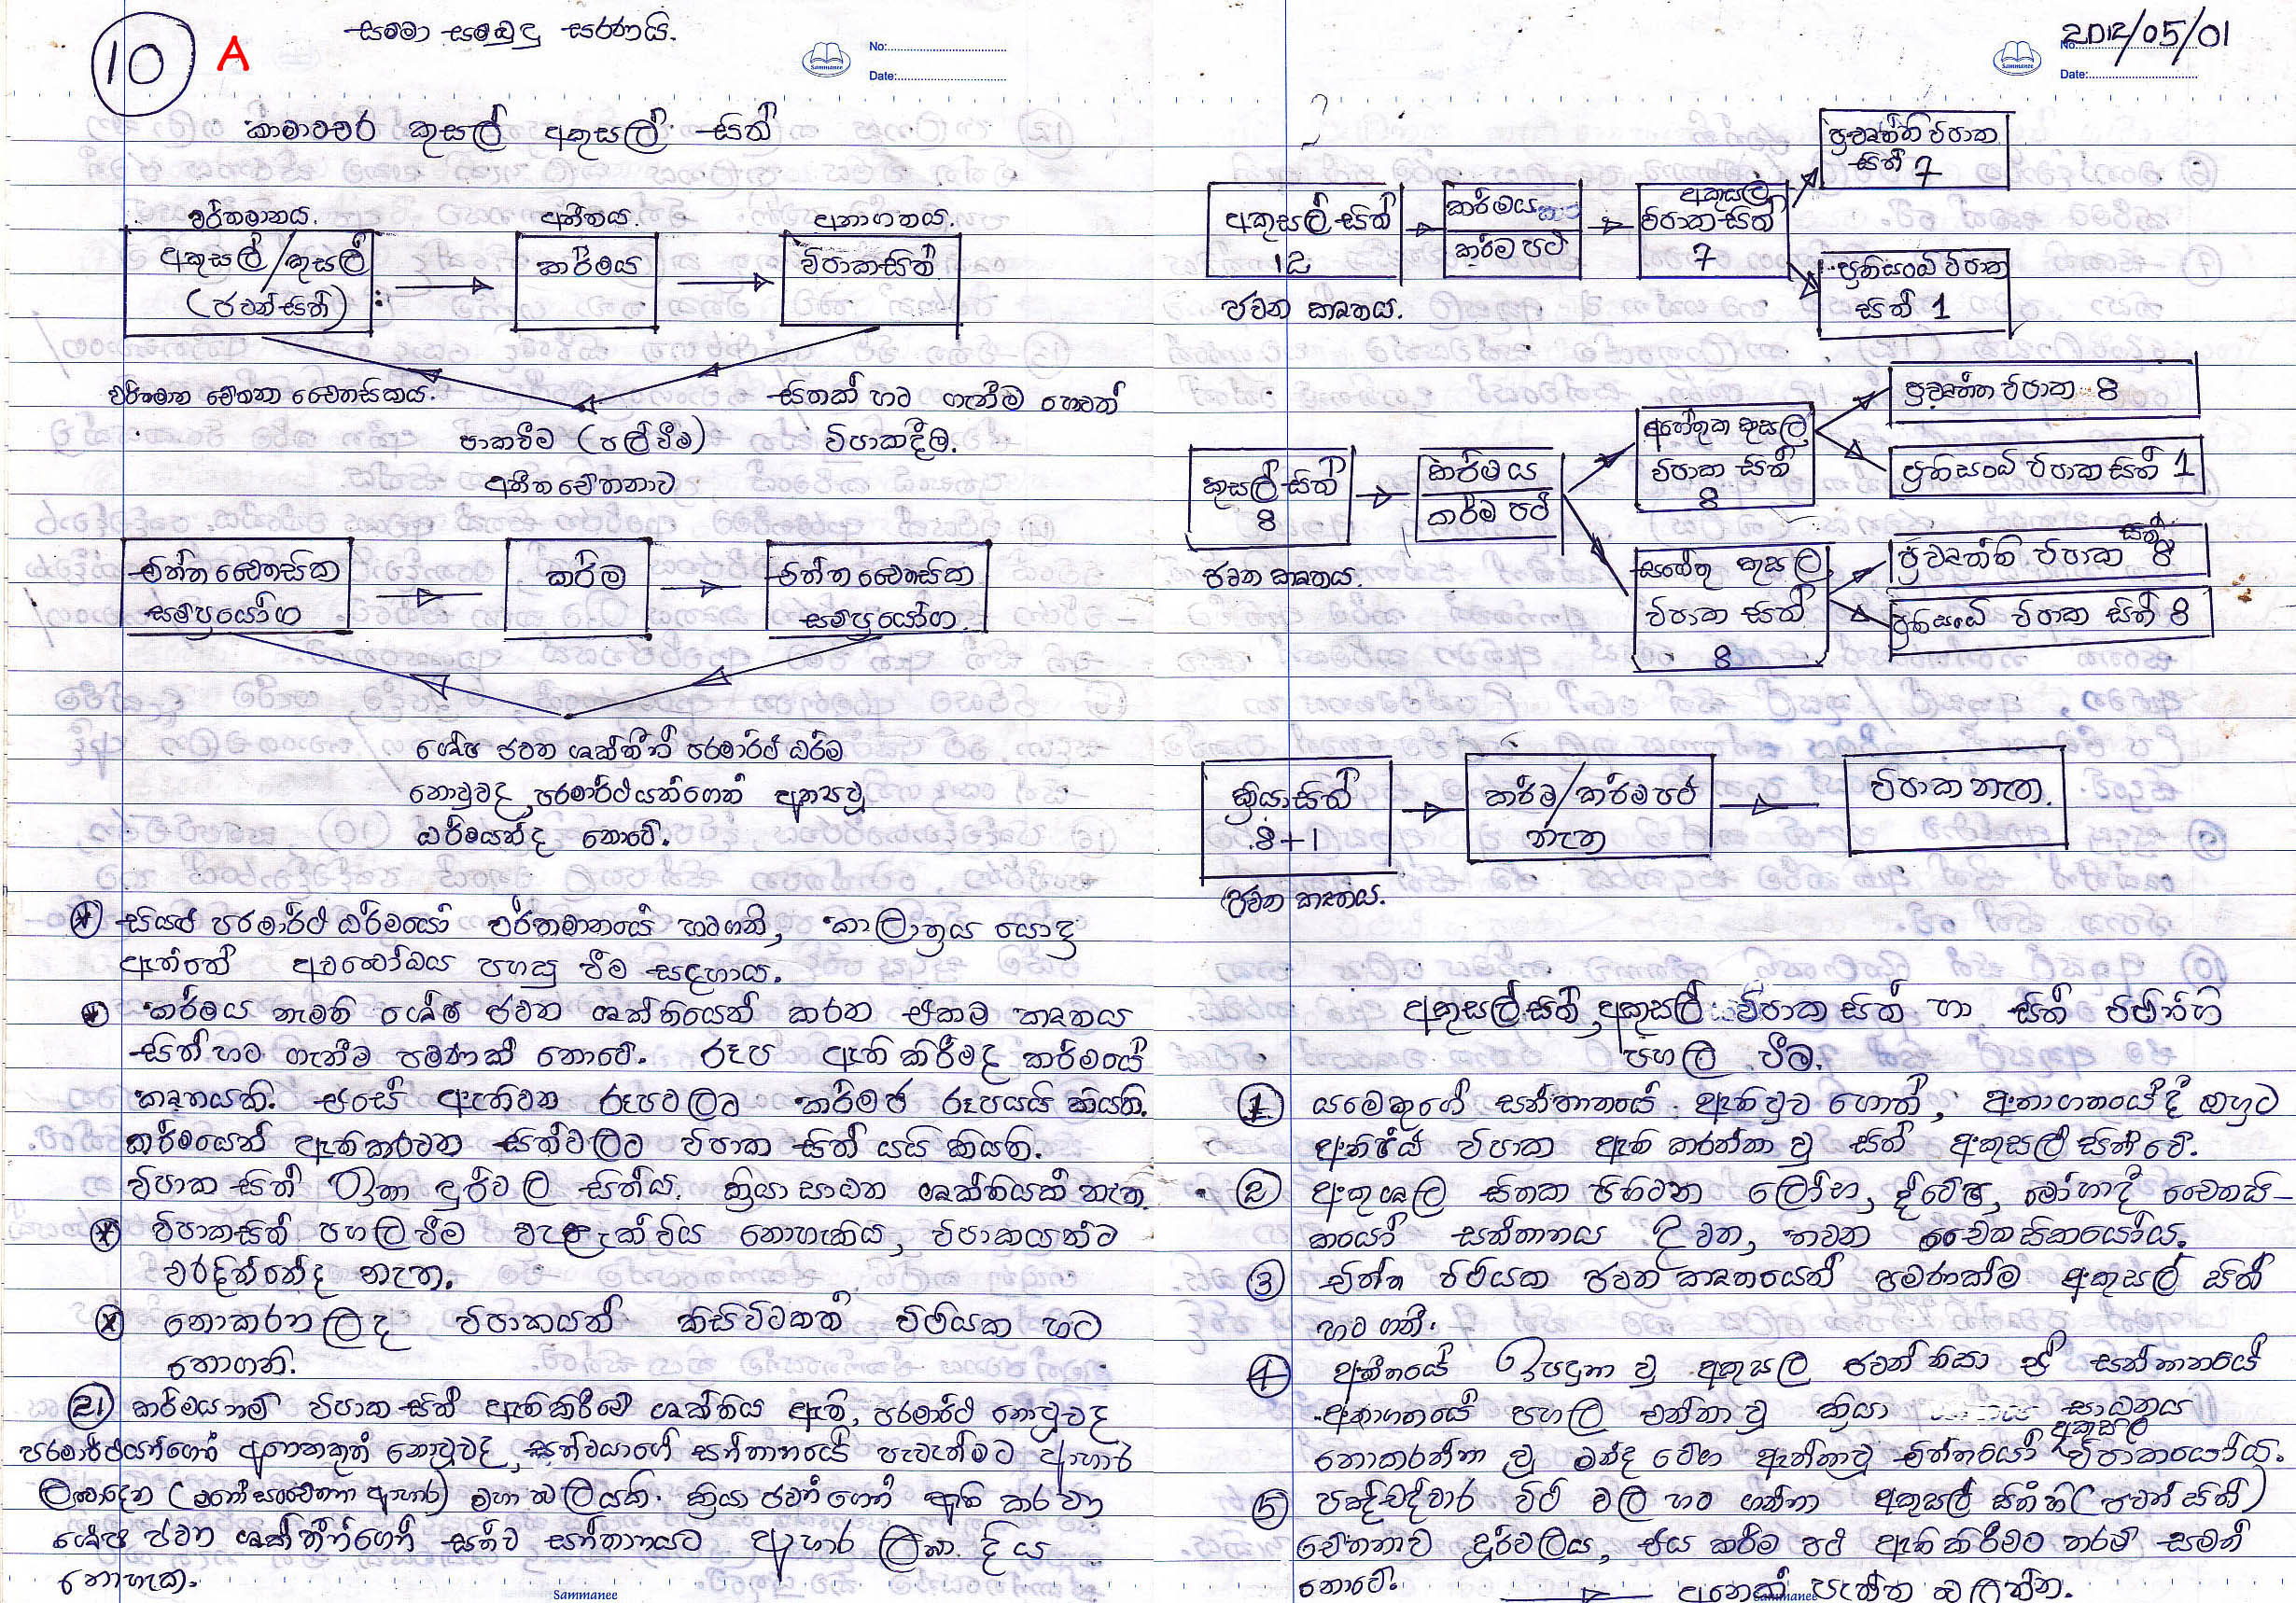 10
A
සම්මා සම්බුදු සරණයි.
Sammanee
No:
Date:
කාමාවචර කුසල් අකුසල් සිත්
වර්තමානය.
අතීතය.
අනාගතය.
අකුසල්/කුසල්
(ජවන්සිත්)
කර්මය
විපාකසිත්
වර්තමාන චේතනා චෛතසිකය.
සිතක් හට ගැනීම හෙවත්
පාකවීම (පල්වීම)
විපාකදීල.
අතීත චේතනාව
චිත්ත චෛතසික
සම්ප්‍රයෝග
කර්ම
චිත්ත චෛතසික
සම්ප්‍රයෝග.
ශේෂ ජවන ශක්තීන් පරමාර්ථ ධර්ම
නොවුවද, පරමාර්ථයන්ගෙන් අන්‍යවූ
ධර්මයන්ද නොවේ.
සියළු පරමාර්ථ ධර්මයෝ වර්තමානයේ හටගනි, කාලාත්‍රය යොදා
ඇත්තේ අවබෝධය පහසු වීම සඳහාය.
කර්මය නැමති ශේෂ ජවන ශක්තියෙන් කරන එකම කෘත්‍යය
සිත් හට ගැනීම පමණක් නොවේ. රූප ඇති කිරීමද කර්මයේ
කෘත්‍යයකි. එසේ ඇතිවන රූපවලට කර්මජ රූපයයි කියති.
කර්මයෙන් ඇතිකරවන සිත්වලට විපාක සිත් යයි කියති.
විපාක සිත් ඉතා දුර්වල සිත්ය. ක්‍රියා සාධන ශක්තියක් නැත.
විපාකසිත් පහලවීම වැළැක්විය නොහැකිය, විපාකයන්ට
වරදින්නේද නැත.
නොකරන ලද විපාකයන් කිසිවිටකත් විථියක හට
නොගනි.
21 කර්මයනම් විපාක සිත් ඇතිකිරීමේ ශක්තිය ඇති, පරමාර්ථ නොවුවද
පරමාර්ථයන්ගෙන් අන්‍යනෙකුත් නොවුවද, සත්වයාගේ සන්තානයේ පැවැත්මට ආහාර
ලබාදෙන (මනෝ සංචේතනා ආහාර) මහා බලයකි. ක්‍රියා ජවන් ගෙන් ඇති කරවනු
ශේෂ ජවන ශක්තීන්ගෙන් සත්ව සන්තානයට ආහාර ලබා දිය
නොහැක.
Sammanee
2012/05/01
Sammanee
No:
Date:
අකුසල් සිත්
12
ජවන කෘත්‍යය.
කර්මය
කර්ම පථ
අකුසල
විපාක සිත්
7
ප්‍රවෘත්ති විපාක
සිත් 7
ප්‍රතිසංධි විපාක
සිත් 1
කුසල් සිත්
8
ජවන කෘත්‍යය.
කර්මය
කර්ම පථ
අහේතුක කුසල
විපාක සිත්
8
ප්‍රවෘත්ත විපාක 8
ප්‍රතිසංධි විපාක සිත් 1
සහේතු කුසල
විපාක සිත්
8
ප්‍රවෘත්ති විපාක සිත් 8
ප්‍රතිසංධි විපාක සිත් 8
ක්‍රියාසිත්
8+1
ජවන කෘත්‍යය.
කර්ම/කර්මපථ
නැත
විපාක නැත.
අකුසල්සිත්, අකුසල් විපාක සිත් හා සිත් විථින්හි
පහල වීම.
1 යමෙකුගේ සන්තානයේ ඇතිවුව හොත්, අනාගතයේදී ඔහුට
අනිෂ්ඨ විපාක ඇති කරන්නා වූ සිත් අකුසල් සිත් වේ.
2 අකුශල සිතක පිහිටන ලෝභ, ද්වේෂ, මෝහාදී චෛතසි-
කයෝ සන්තානය දවන, තවන චෛතසිකයෝය.
3 චිත්ත විථියක ජවන කෘත්‍යයෙන් පමණක්ම අකුසල් සිත්
හට ගනී.
4 අතීතයේ ඉපදුනා වූ අකුසල ජවන් නිසා ඒ සන්තානයේ
අනාගතයේ පහල වන්නා වූ ක්‍රියා සාධනය
නොකරන්නා වූ මන්ද වේග ඇත්තාවූ චිත්තයෝ අකුසල විපාකයෝයි.
5 පඤ්චද්වාර විථි වල හට ගන්නා අකුසල් සිත්හි (ජවන් සිත්)
චේතනාව දුර්වලය, එය කර්ම පථ ඇතිකිරීමට තරම් සමත්
නොවේ.
අනෙක් පැත්ත බලන්න.
Sammanee